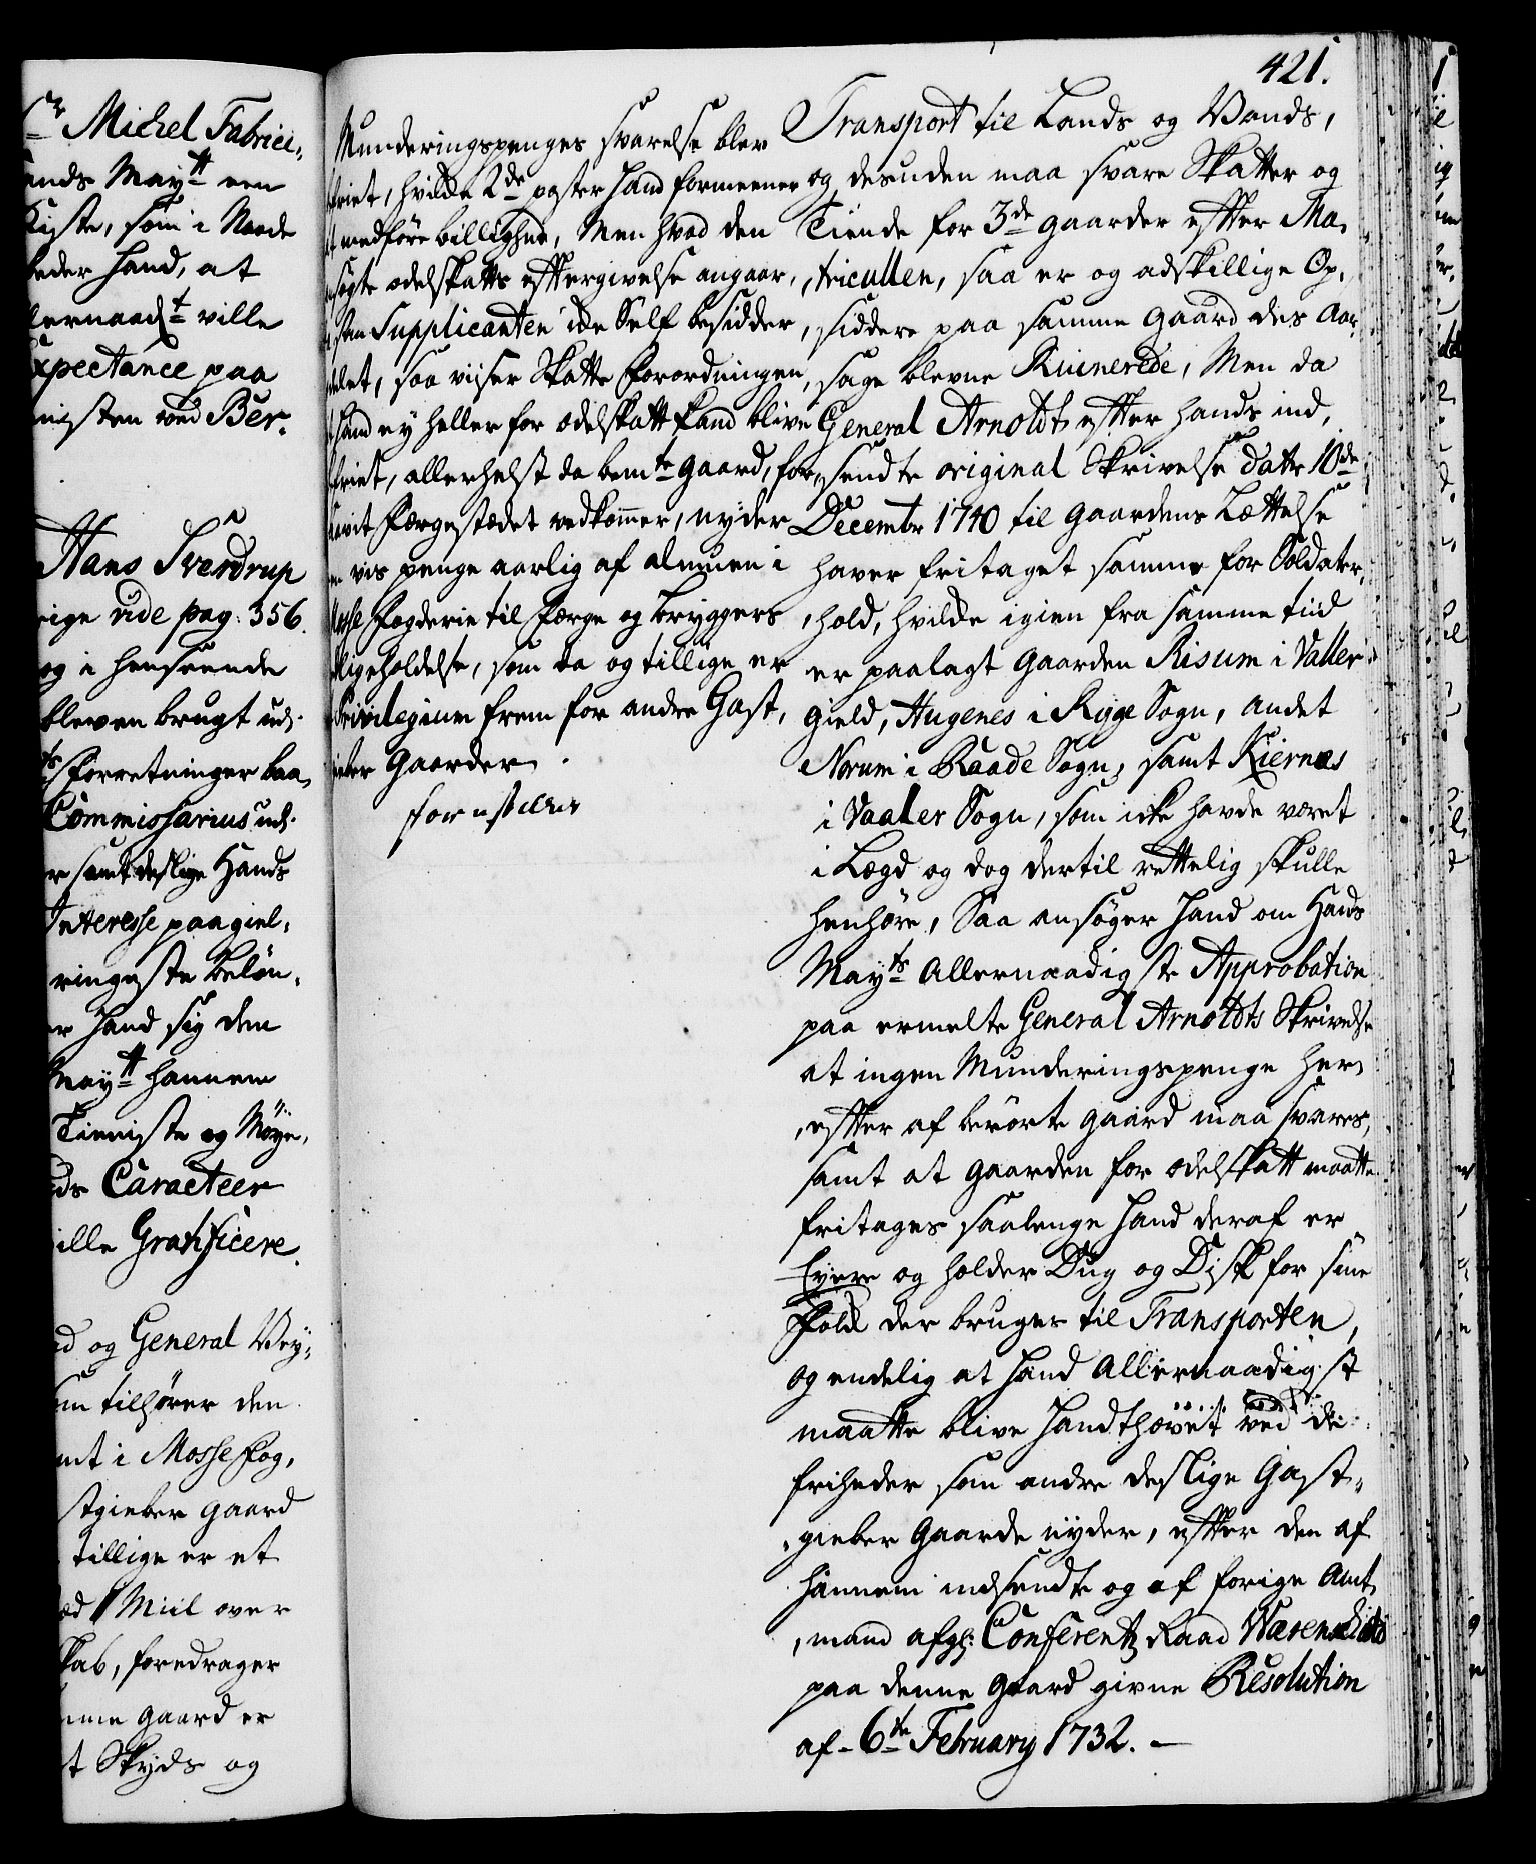 421.
Michel Fabrici,
ands Maytt een
som i Naade
beder hand, at
lernaadt ville
Expectance paa
nisten ved Ber-
Hans Sverdrup
rige vide pag: 356.
og i henseende
bleven brugt ud-
Forretninger baa,
Commissarius ud-
r samt deslige Hands
Interesse paagiel,
ringeste belön,
er hand sig dem
Maytt hannem
Tieniste og Möye,
ds Caracteer
ille Gratificere.
d og General Vey,
om tilhører den
mt i Mosse Fog,
stgieber gaard
tillige er et
1 Miil over
skab, foredrager
mme gaard er
t Skyds og
Munderingspenges svarelse blev
friet, hvilke 2de poster hand formeener
medföre billighed, Men hvad den
søgte odelskatts eftergivelse angaar,
Supplicanten ide Self besidder,
det, saa viiser Skatte Forordningen,
hand ey heller for odelskatt kand blive
friet, allerhelst da bemte gaard, for,
vit Færgestædet vedkommer, nyder
vis penge aarlig af almuen i
Mosse Fogderie til Færge og bryggers
ligeholdelse, som da og tillige er
Privilegium frem for andre Gast,
gieber Gaarder.
Transport til Lands og Vands,
og desuden maa svare Skatter og
Tiende for 3de gaarder efter Ma,
,triculen, saa er og adskillige Op,
,siddere paa samme gaard des Aar,
,sage blevne Ruinerede, Men da
General Arnoldt efter hands ind,
,sendte original Skrivelse datr 10de
Decembr 1740 til gaardens Lættelse
haver fritaget samme for Soldater,
,hold, hvilke igien fra samme tiid
er paalagt gaarden Risum i Valler
gield, Hugenes i Rygge Sogn, Andet
Norum i Raade Sogn, samt Kiernæs
i Vaaler Sogn, som icke havde været
i Lægd og dog dertil rettelig skulle
henhøre, Saa ansøger hand om Hands
Mayts Allernaadigste Approbation
paa ermelte General Arnoldts Skrivelse
at ingen Munderingspenge her,
,efter af berörte gaard maa svares,
samt at gaarden for odelskatt maatte
fritages saalenge hand deraf er
Eyere og holder Dug og Disk for sine
Folk der bruges til Transporten,
og endelig at hand Allernaadigst
maatte blive handthævet ved de
friheder som andre deslige Gast,
,gieber Gaarde nyder, efter den af
hannem indsendte og af forige Amt,
,mand afg: Conferentz Raad Værenskiold
paa denne gaard givne Resolution
af 6te February 1732. –